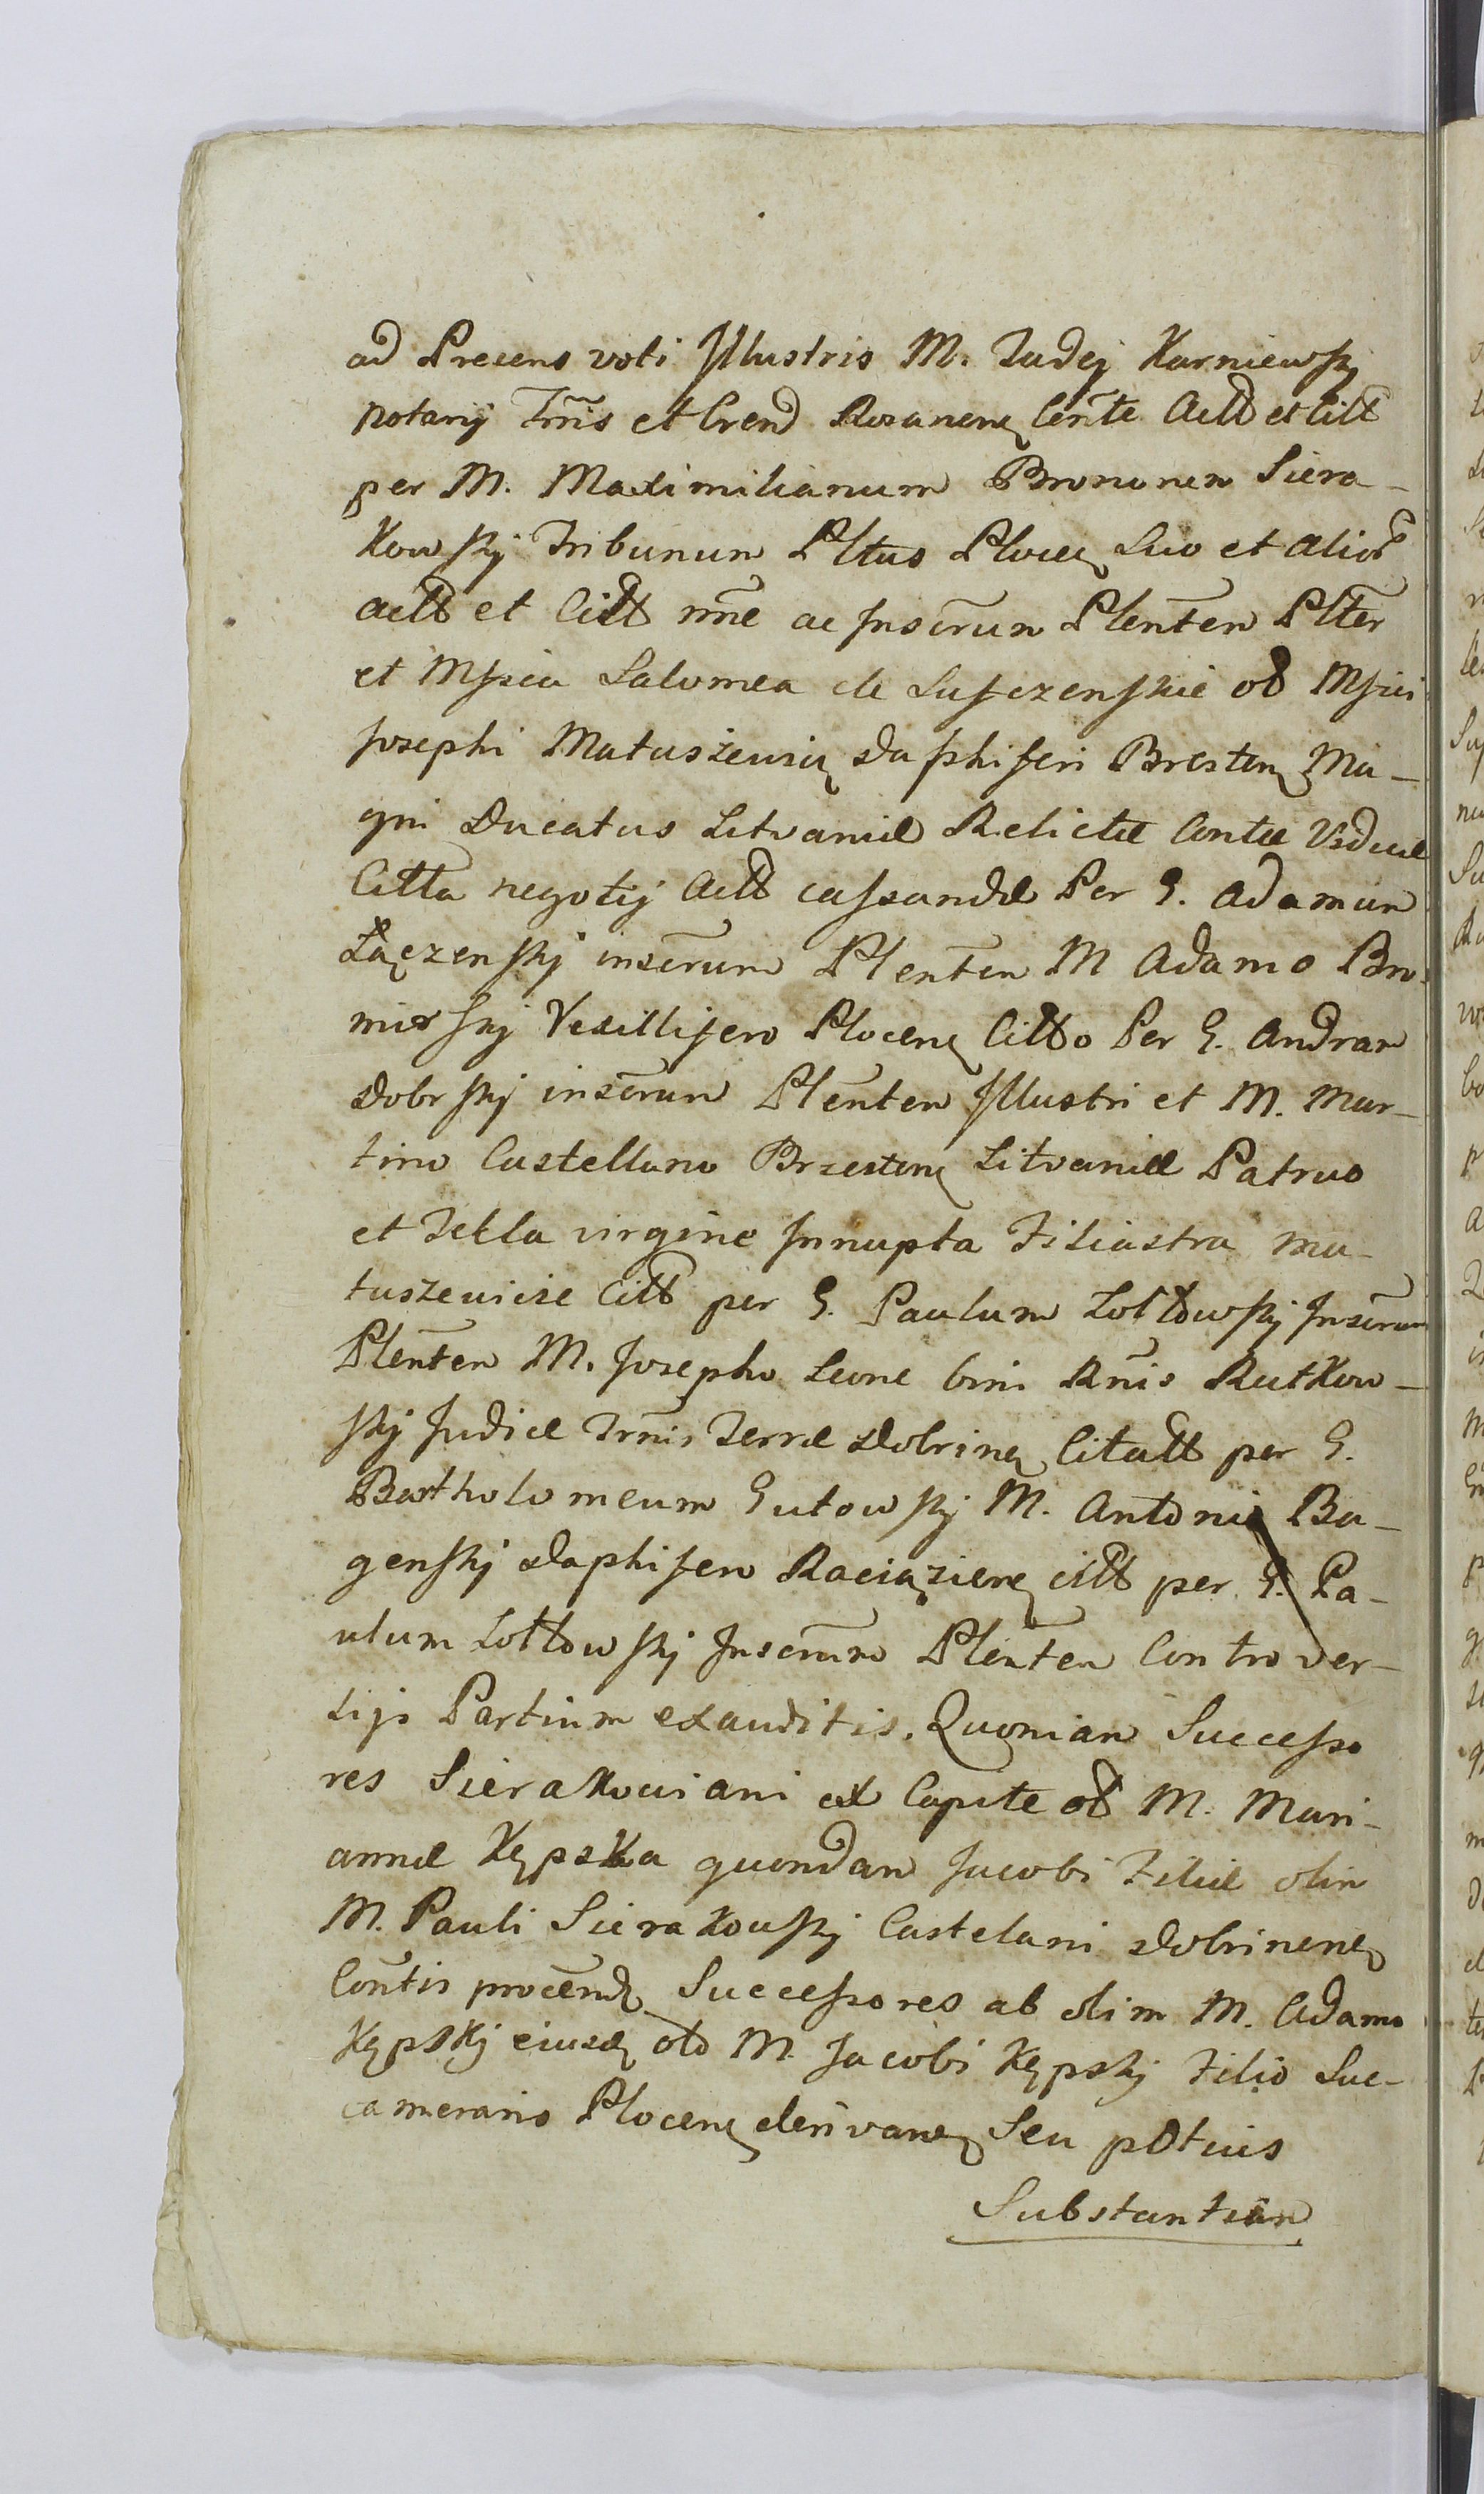 ad Precens voti Jllustris M. Tadej Karniewskj
Notarij Trñis et Crend Rozanenę Cente Actt et Citt
per M. Maximilianum Brononem Siera-
kowskj Tribunum Pltus Plocen Suo et alior
actt et Citt nñe ac Jnscrum Plenten Plter
et Msica Salomea de Sufczenskie od Msici
Josephi Matuszewicz Daphiferi Bresten Ma-
gni Ducatus Litvaniæ Relictæ Contæ Viduæ
Citta negotij Actt cassandæ Per G. Adamum
Łączenskj inscrum Plenten M Adamo Bro-
mirskj Vexillifero Plocenę Citto Per G. Andram
Dobrskj inscrum Plenten Jllustri et M. Mar-
tino Castellano Brzestenę Litvaniæ Patruo
et Tekla virgine Jnnupta Filiastra Ma-
tuszewicze Citt per G. Paulum Zołtowskj Jnscrum
Plenten M. Josepho Leone bini Rnis Rutkow-
skj Judice Trnis Terræ Dobrinę Citatt per G.
Bartholomeum Gutowskj M. Antonio Ba-
genskj Daphifero Raciązienę citt per G. Pa-
ulum Zołtowskj Jnscrum Plenten Controver-
sijs Partium exauditis. Quoniam Successo
res Sierakoviani ex Capite od M. Mari-
annæ Kępska quondam Jacobi Filiæ olim
M. Pauli Sierakowskj Castelani Dobrinenę
Contis procend Successores ab olim M. Adamo
Kępskj eiusd od M. Jacobi Kępskj Filio Suc-
camerario Plocenę derivanę Seu potius
Substantiam